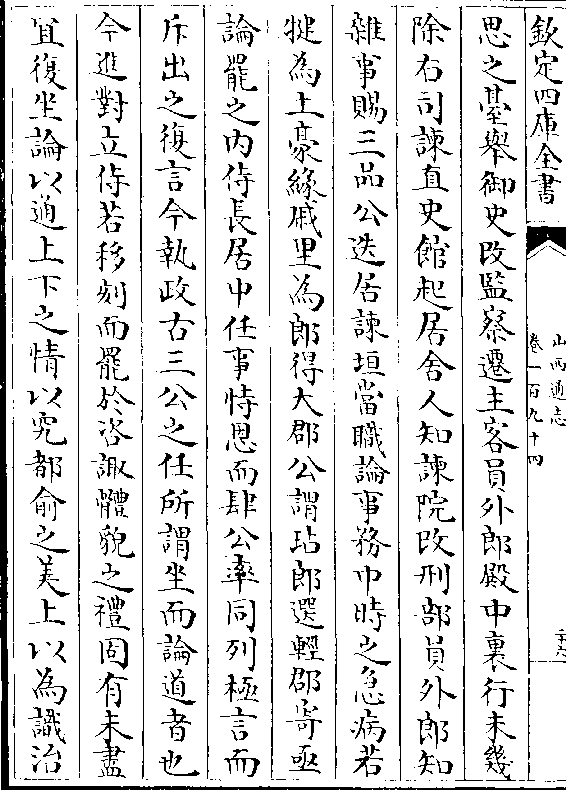 欽定四庫全書
山西通志
卷一百九十四
二十六
思之臺舉御史改監察遷主客員外郎殿中裏行未幾
除右司諫直史館起居舍人知諫院改刑部員外郎知
雜事賜三品公迭居諫垣當職論事務中時之急病若
犍為上豪緣戚里為郎得大郡公謂玷郎選輕郡寄亟
論罷之内侍長居中任事恃恩而肆公率同列極言而
斥出之復言今執政古三公之任所謂坐而論道者也
今進對立侍若移刻而罷於咨諏體貌之禮固有未盡
宜復坐論以通上下之情以究都俞之美上以為識治